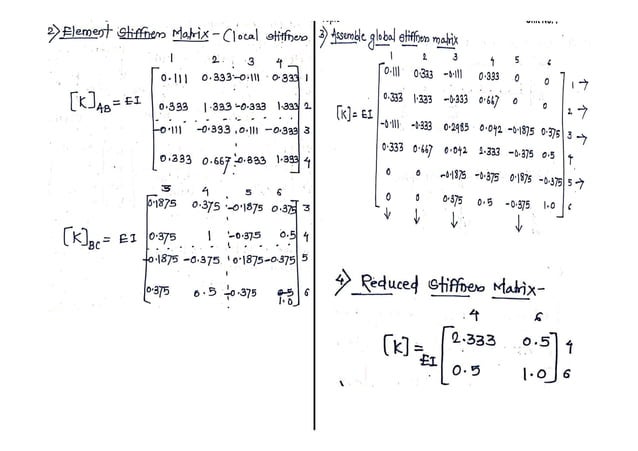 2) Element Stiffness Matrix - (local stiffness
1 2 3 4
[K]AB = EI
0.111 0.333 -0.111 0.333 1
0.333 1.333 -0.333 1.333 2
-0.111 -0.333 0.111 -0.333 3
0.333 0.667 -0.333 1.333 4
3 4 5 6
[K]BC = EI
0.1875 0.375 -0.1875 0.375 3
0.375 1 -0.375 0.5 4
-0.1875 -0.375 0.1875 -0.375 5
0.375 0.5 -0.375 0.5 6
1.0
3) Assemble global stiffness matrix
1 2 3 4 5 6
[K] = EI
0.111 0.333 -0.111 0.333 0 0 1 →
0.333 1.333 -0.333 0.667 0 0 2 →
-0.111 -0.333 0.2985 0.042 -0.1875 0.375 3 →
0.333 0.667 0.042 2.333 -0.375 0.5 4
0 0 -0.1875 -0.375 0.1875 -0.375 5 →
0 0 0.375 0.5 -0.375 1.0 6
↓ ↓ ↓ ↓
4) Reduced Stiffness Matrix -
4 6
[K] = EI
2.333 0.5 4
0.5 1.0 6